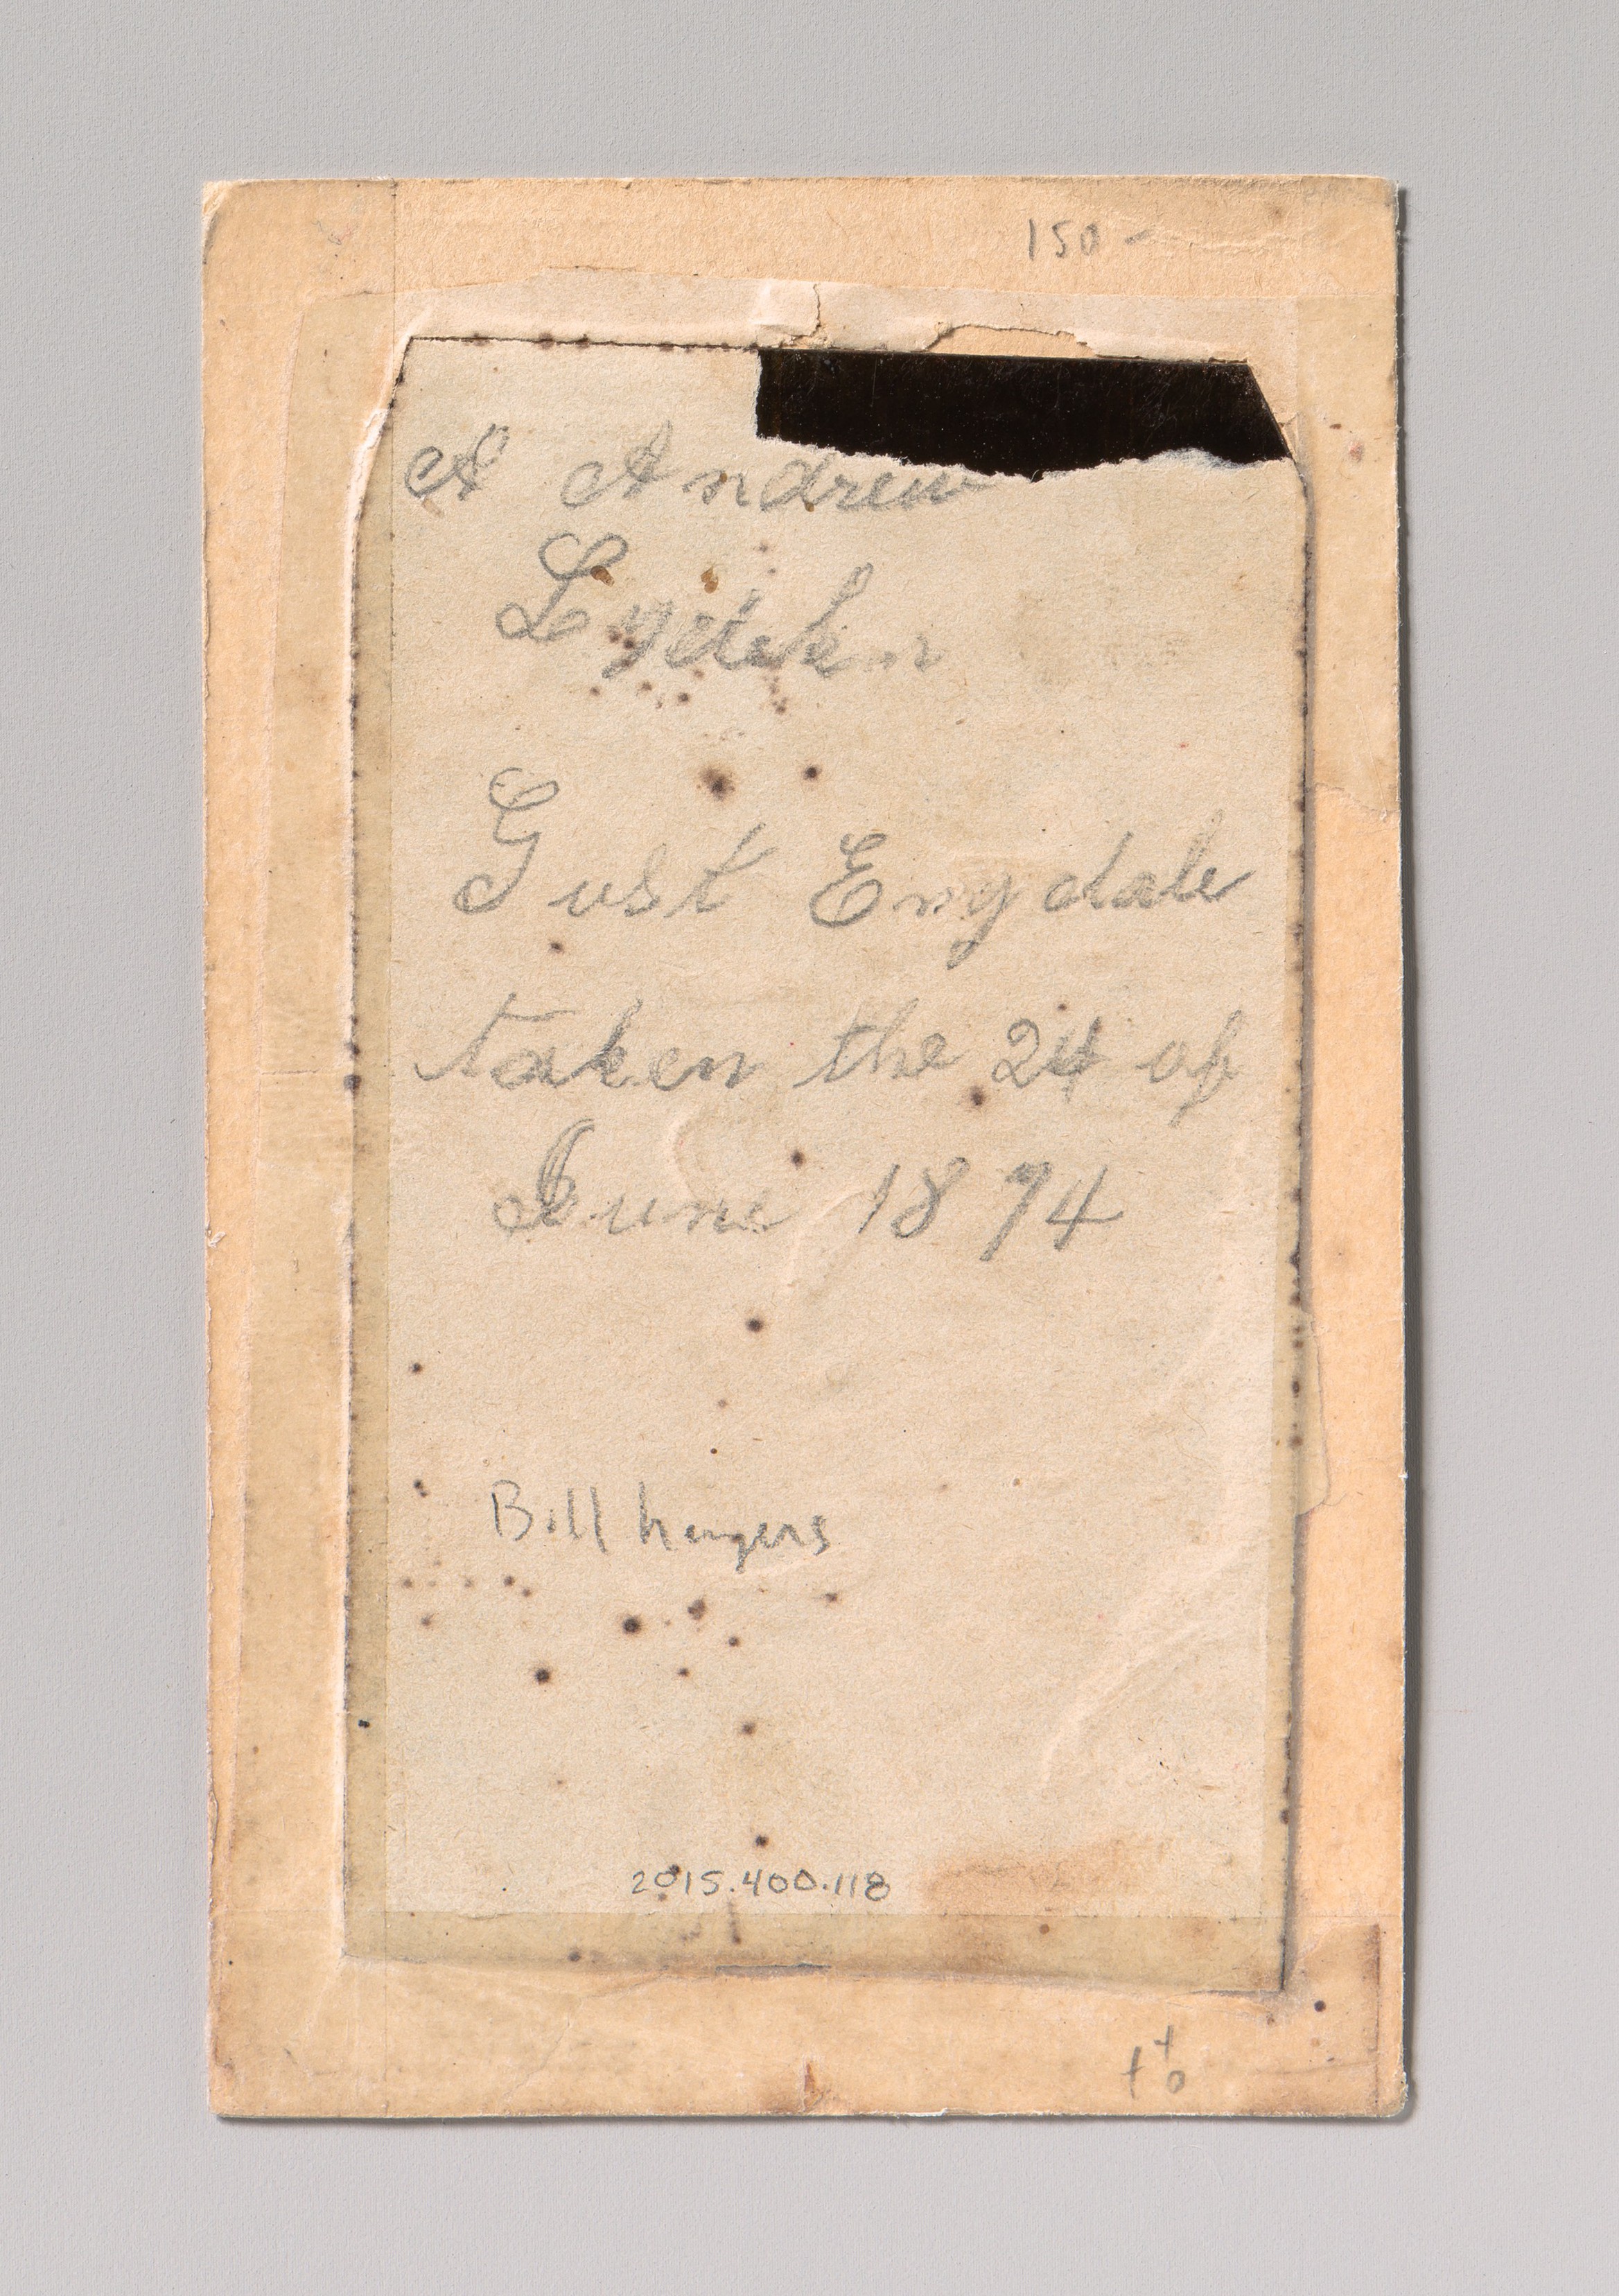 150-
A Andrew
Gust Engdale
taken the 24 of
June 1894
Bill hangers
2015.400.118